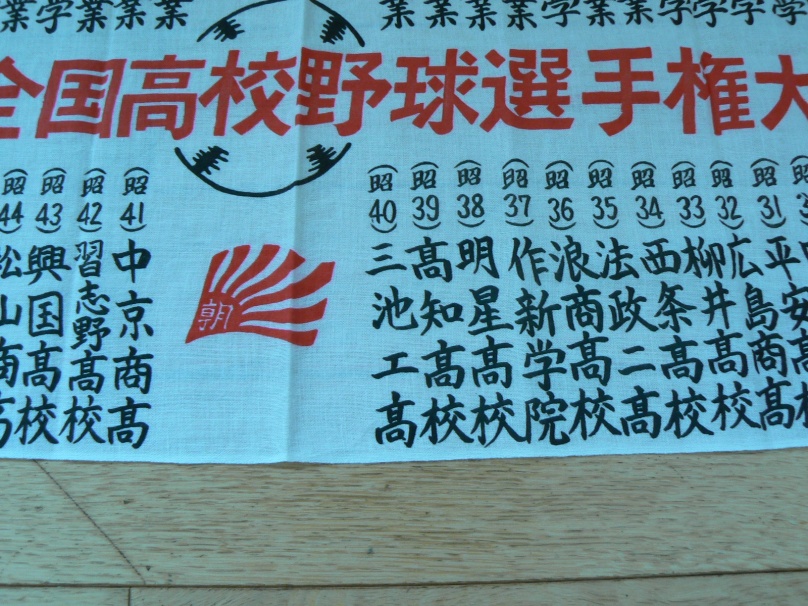 全国高校野球選手権大
(昭31) 平安高校
(昭32) 広島商高
(昭33) 柳井高校
(昭34) 西条高校
(昭35) 法政二高
(昭36) 浪商高校
(昭37) 作新学院
(昭38) 明星高校
(昭39) 高知高校
(昭40) 三池工高
朝
(昭41) 中京商高
(昭42) 習志野高校
(昭43) 興国高校
(昭44) 松山商高